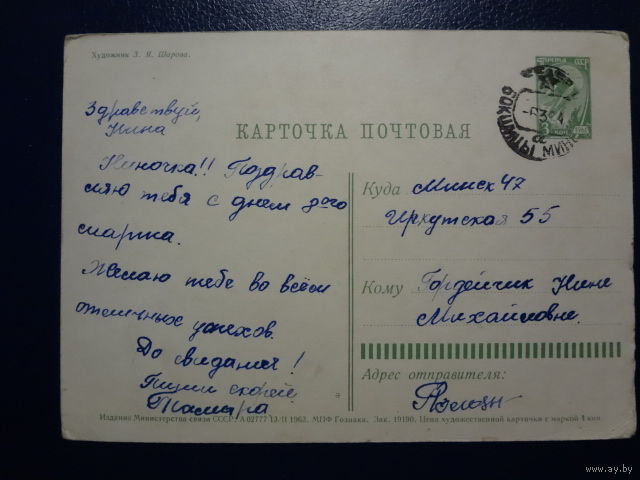 Художник З. Я. Шарова.
Здравствуй,
Нина
КАРТОЧКА ПОЧТОВАЯ
ПОЧТА СССР
Ниночка!! Поздрав-
ляю тебя с днем 8ого
марта.
Желаю тебе во всем
отличных успехов.
До свидания!
Пиши скорей,
Тамара
Куда Минск 47
Иркутская 55
Кому Гордейчик Нине
Михайловне.
Адрес отправителя:
Издание Министерства связи СССР. А 02777 13/II 1963. МПФ Гознака. Зак. 19190. Цена художественной карточки с маркой 4 коп.
ay.by